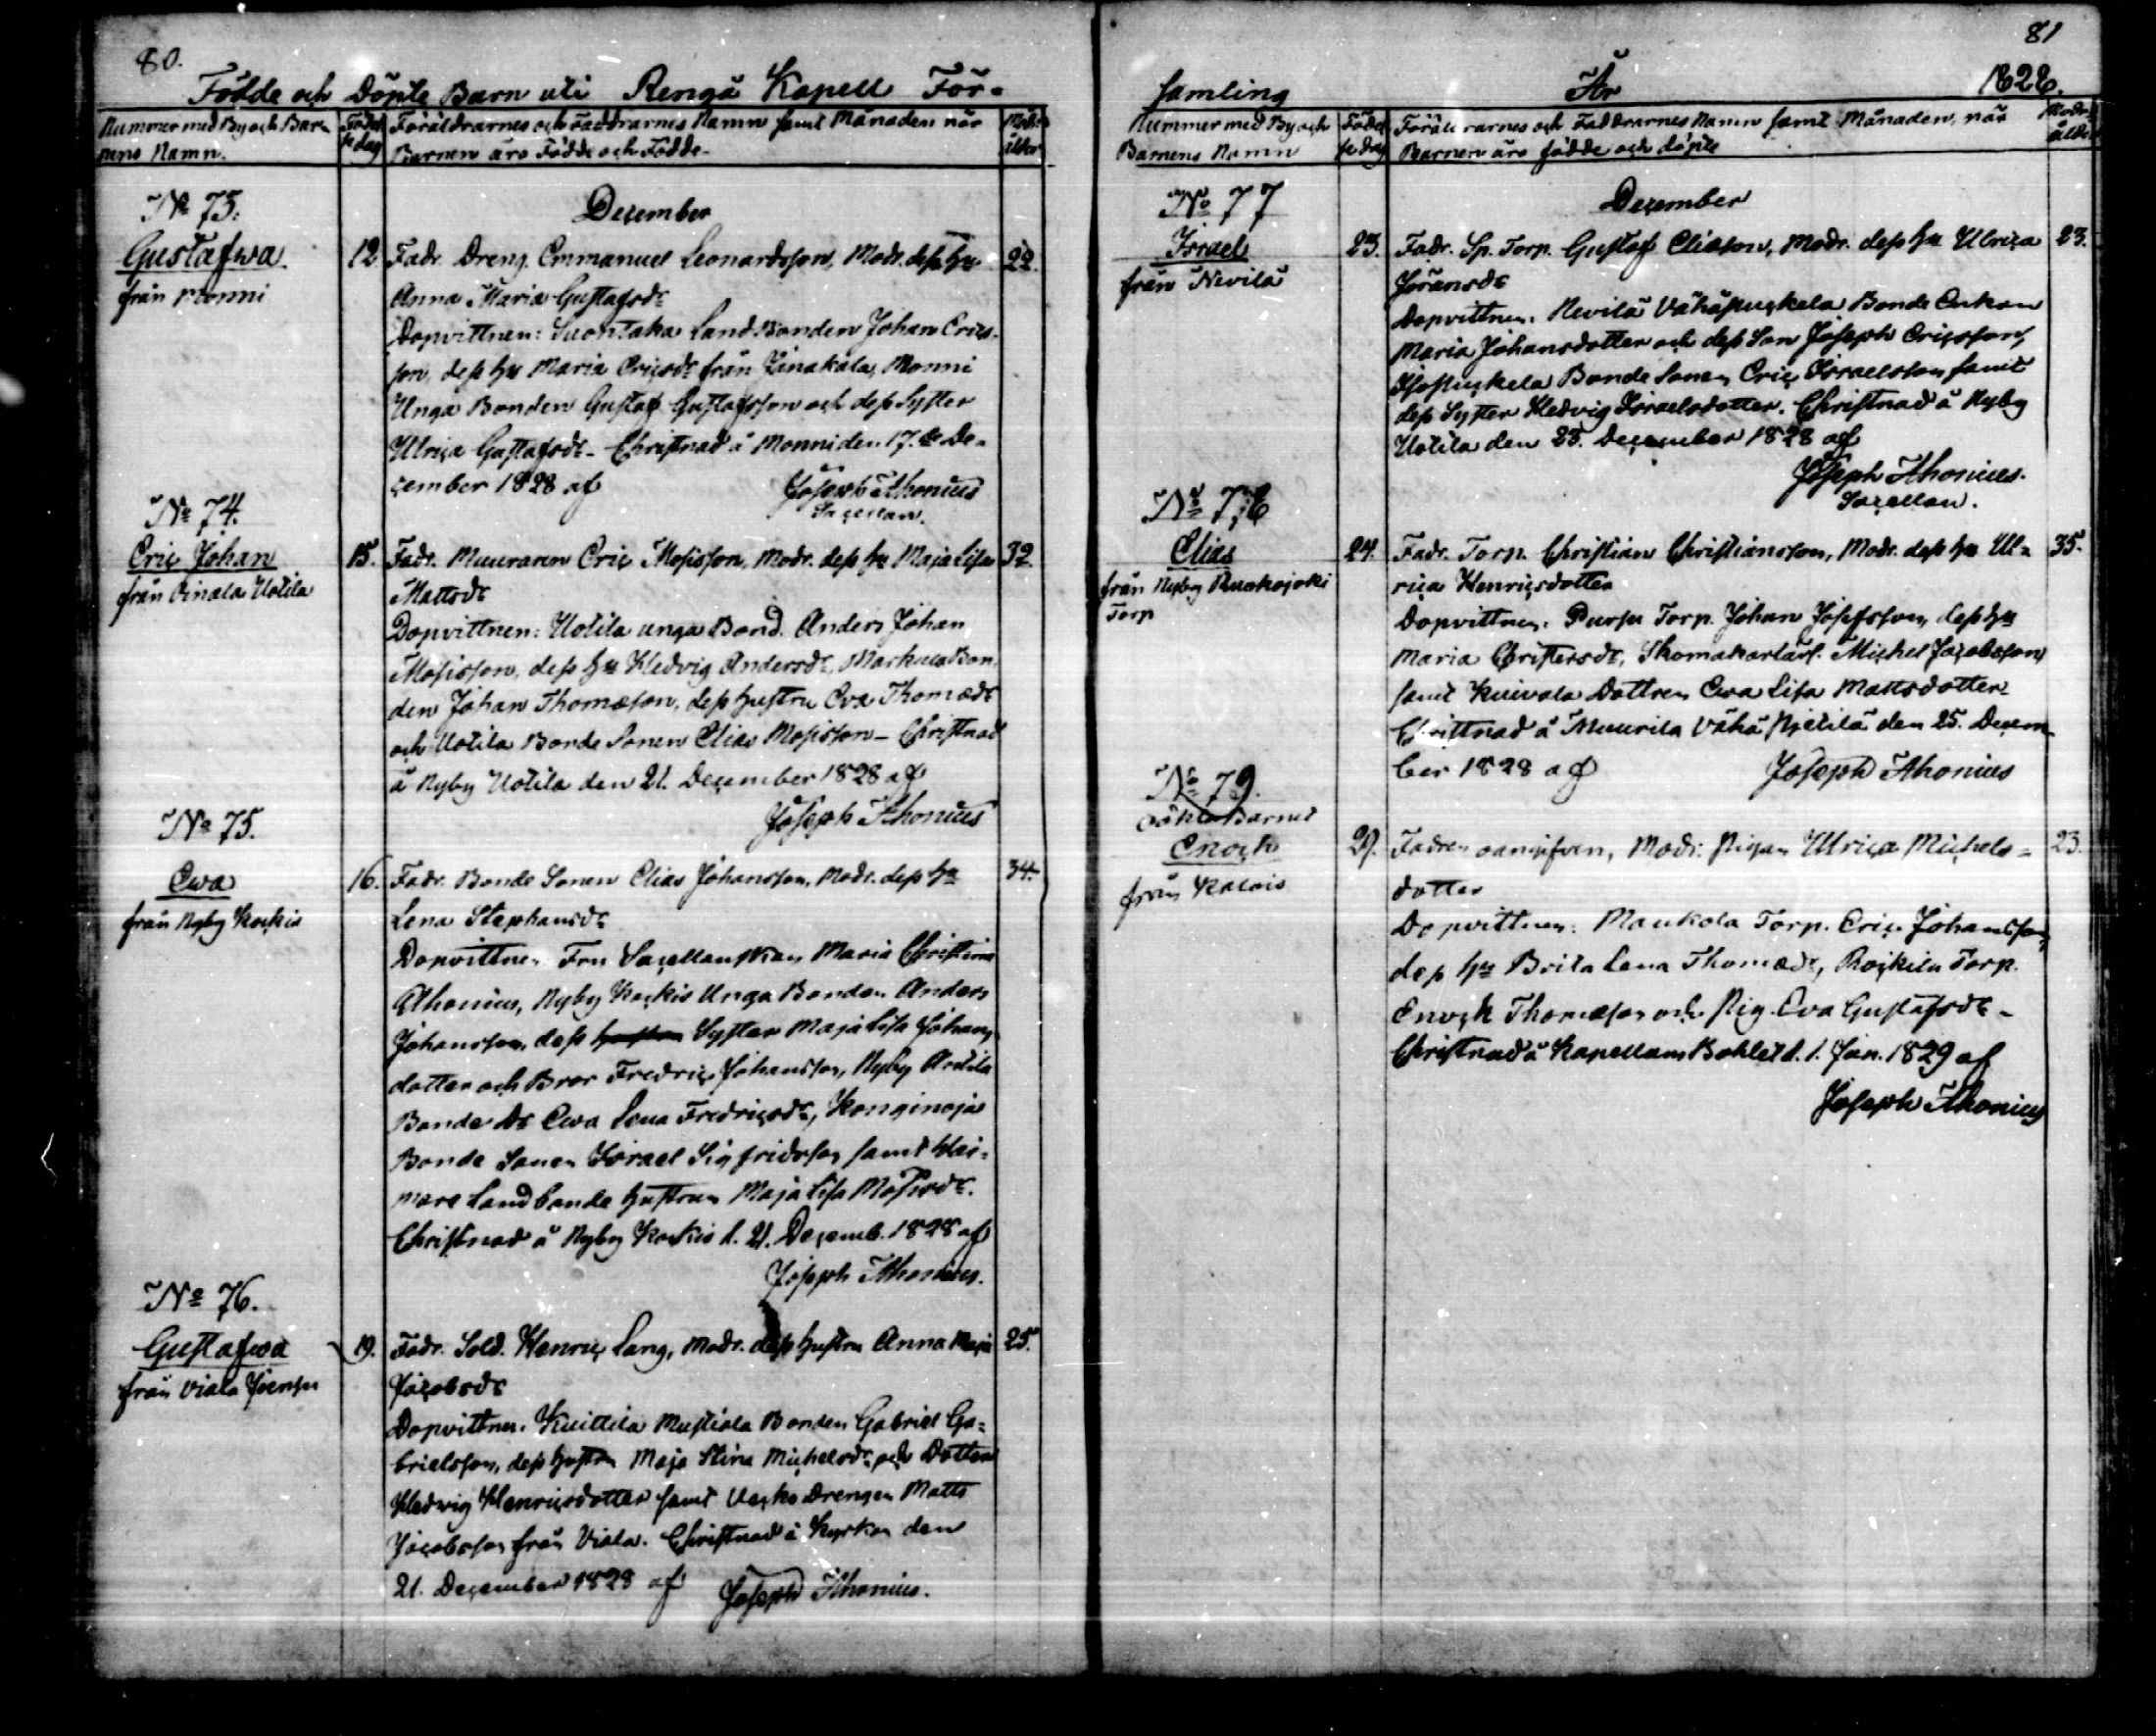 80.
Födde och Döpte Barn uti Rengå Kapell För-
Nummer med By och Bar-
nens Namn.
Födel
se dag
Föräldrarnes och Faddrarnes Namn samt Månaden när
Barnen äro Födde och Födde-
Modr.
ålder
December
No 73.
Gustafwa
från Monni
12
Fadr. Dreng. Emmanuel Leonardsson, Modr. dess Hu
22.
Anna Maria Gustafsdr
Dopvittnen: Suontaka Land Bonden Johan Erics-
son, dess Hu Maria Ericsdr från Janakala, Monni
Unga Bonden Gustaf Gustafsson och dess Syster
Ulrica Gustafsdr - Christnad å Monni den 17. De-
cember 1828 af
Joseph Ahonius
Sacellan.
No 74.
Eric Johan
från Uotila
15.
Fadr. Muuraren Eric Mosisson, Modr. dess Hu Maja Lisa
32
Mattsdr
Dopvittnen: Uotila unga Bond. Anders Johan
Mosisson, dess Hu Hedvig Andersdr, Markula Bon-
den Johan Thomæson, dess hustru Eva Thomædr
och Uotila Bonde Sonen Elias Mosisson - Christnad
å Nyby Uotila den 21. December 1828 af
Joseph Ahonius
No 75.
Ewa
från Nyby Kockis
16.
Fadr. Bonde Sonen Elias Johansson, Modr. dess Hu
34.
Lena Stephansdr
Dopvittnen Fru Sacellanskan Maria Christina
Ahonius, Nyby Kockis Unga Bonden Anders
Johansson, dess hustru Syster Maja Lisa Johans-
dotter och Bror Fredric Johansson, Nyby Anttila
Bonde Dr Ewa Lena Fredricsdr, Konginoja
Bonde Sonen Israel Sigfridsson samt Hai-
mare Landbonde hustrun Maja Lisa Mosisdr.
Christnad å Nyby Kockis d. 21. Decemb. 1828 af
Joseph Ahonius.
No 76.
Gustafwa
från Viala
19.
Fadr. Sold. Henric Lang, Modr. dess hustru Anna Maja
25.
Jacobsdr
Dopvittnen. Kuittila Mustiala Bonden Gabriel Ga-
brielsson, dess hustru Maja Stina Michelsdr och Dotter
Hedwig Henricsdotter samt Drengen Matts
Jacobsson från Viala. Christnad i Kyrkan den
21. December 1828 af Joseph Ahonius.
81
samling År 1828.
Nummer med By och
Barnens Namn
Födel
se dag
Föräldrarnes och Faddrarnes Namn samt Månaden, när
Barnen äro födde och döpte
Modr.
ålder
December
No 77
Israel
från Nevilä
23.
Fadr. Sp. Torp. Gustaf Eliæson, Modr. dess Hu Ulrica
23.
Jöransdr
Dopvittnen. Nevilä Vähäpuckela Bonde Enkan
Maria Johansdotter och dess Son Joseph Ericsson,
Isopuckela Bonde Sonen Eric Israelsson samt
dess Syster Hedvig Israelsdotter. Christnad å Nyby
Uotila den 23. December 1828 af
Joseph Ahonius.
Sacellan.
No 78
Elias
från Nyby Ruokojoki
Torp
24.
Fadr. Torp. Christian Christiansson, Modr. dess Hu Ul-
35.
rica Henricsdotter
Dopvittnen. Torp. Johan Josefsson, dess Hu
Maria Christersdr, Michel Jacobsson
samt Kuivala Dottren Ewa Lisa Mattsdotter
Christnad å Muurila Vähä den 25. Decem-
ber 1828 af Joseph Ahonius
No 79.
Oäkta Barnet
Enoch
från Kalois
29.
Fadren oangifven, Modr. Pigan Ulrica Michels-
23.
dotter
Dopvittnen: Maukola Torp. Eric Johansson,
dess Hu Brita Lena Thomædr, Torp.
Enoch Thomæson och Pig. Eva Gustafsdr -
Christnad å Kapellans Bohlet d. 1. Jan. 1829 af
Joseph Ahonius